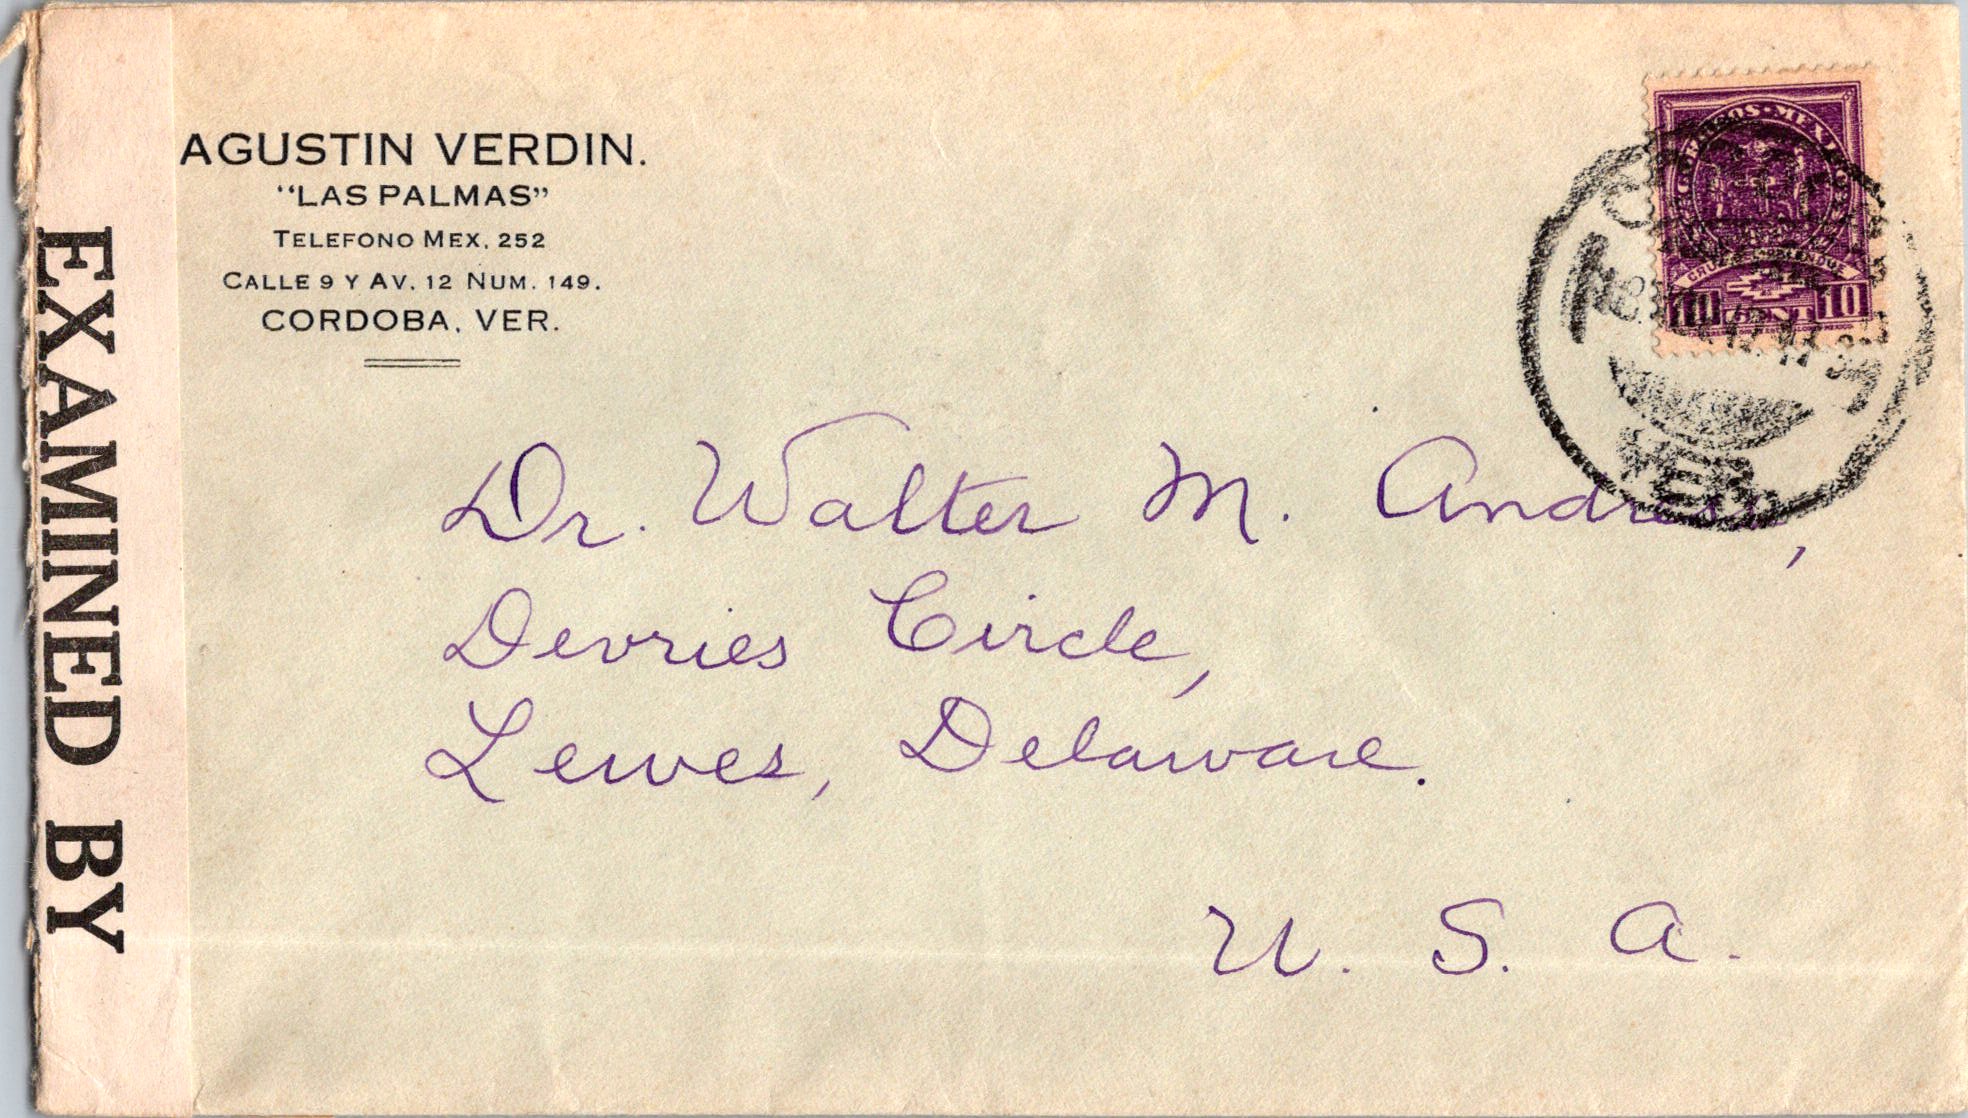 EXAMINED BY
AGUSTIN VERDIN.
"LAS PALMAS"
TELEFONO MEX. 252
CALLE 9 Y AV. 12 NUM. 149.
CORDOBA, VER.
CORREOS · MEXICO
CRUZ DE PALENQUE
10 CENT 10
VER
Dr. Walter M. Andrews,
Devries Circle,
Lewes, Delaware.
U. S. A.